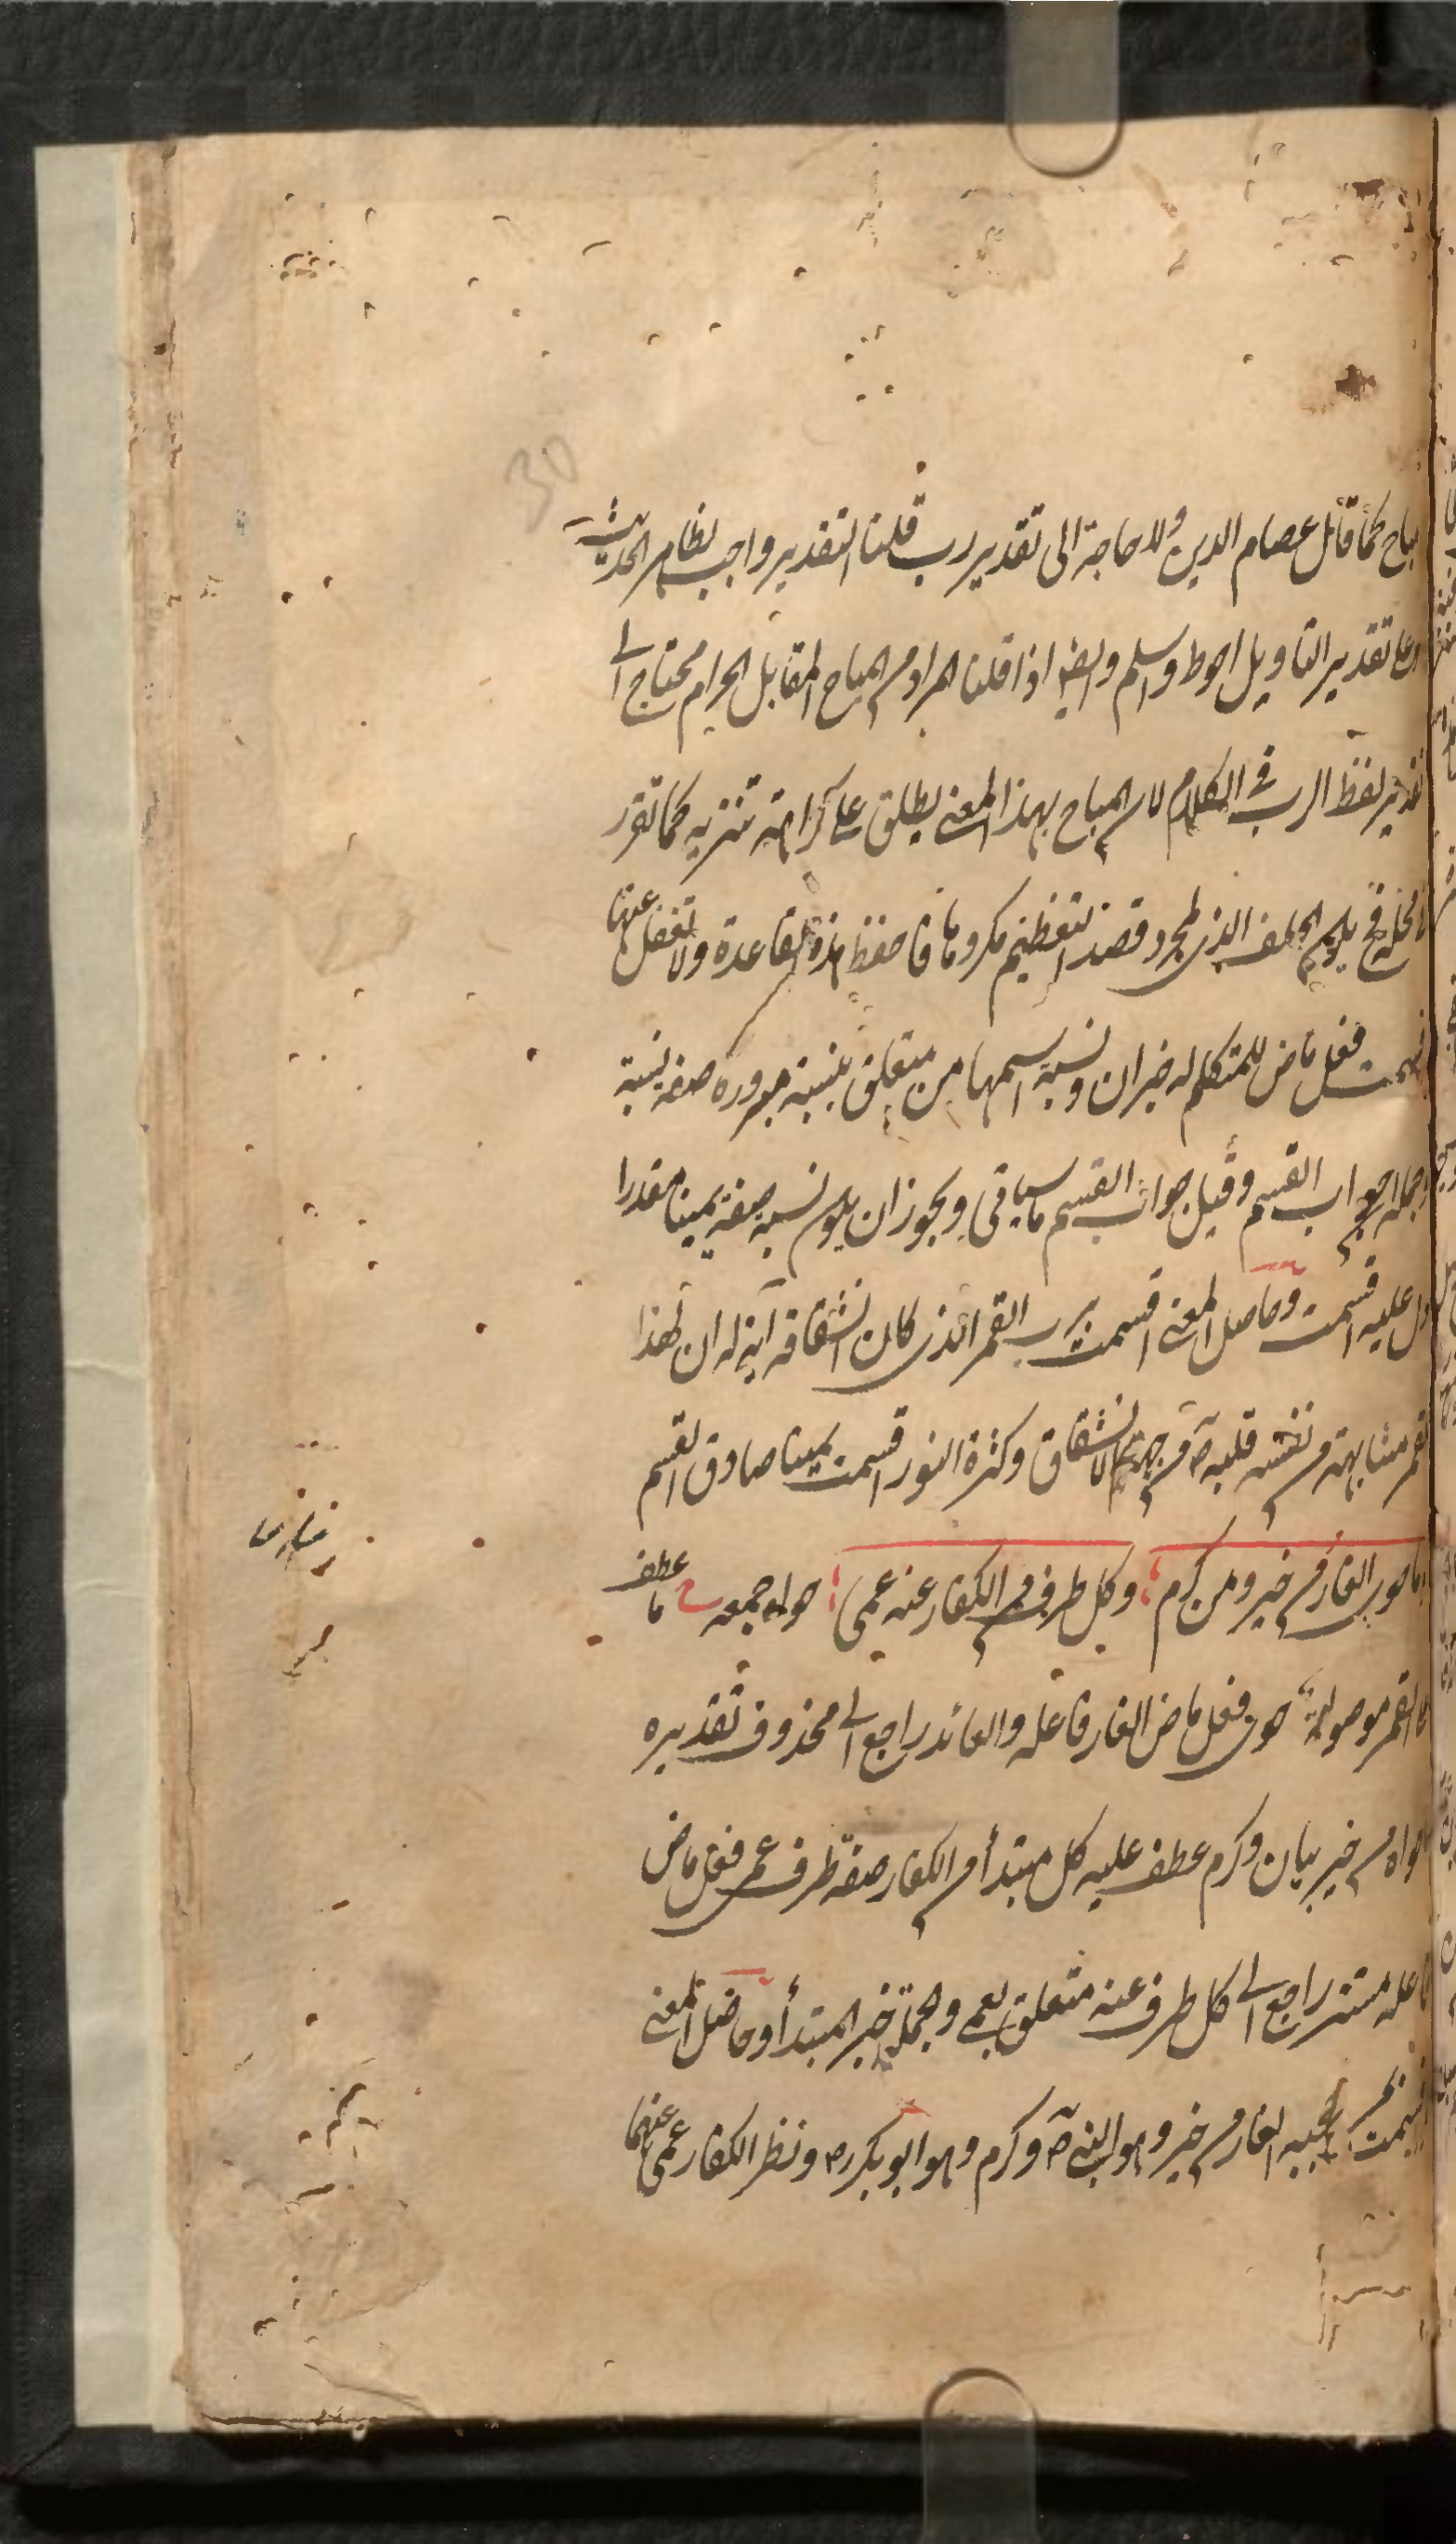 30
مباح كما قال عصام الدين ولا حاجة الى تقدير رب قلنا التقدير واجب لظاهر الحديث
وعلى تقدير التاويل احوط واسلم وايضا اذا قلنا المراد من المباح المقابل الحرام محتاج الى
تقدير لفظ الرب في الكلام لان المباح بهذا المعنى يطلق على كراهة تنزيه كما تقرر
في محله فح يكون الحلف الذي لمجرد قصد التعظيم مكروها فاحفظ هذه القاعدة ولا تغفل عنها
اقسمت فعل ماض للمتكلم له خبر ان ونسبة اسمها من متعلق بنسبة مبرورة صفة نسبة
والجملة جواب القسم وقيل جواب القسم ما سياتي ويجوز ان يكون نسبة صفة يمينا مقدرا
دل عليه اقسمت وحاصل المعنى اقسمت برب القمر الذي كان انشقاقه آية له ان لهذا
القمر مشابهة من نفسه قلبه ص من جهة الانشقاق وكثرة النور اقسمت يمينا صادق القسم
وما حوى الغار من خير ومن كرم وكل طرف من الكفار عنه عمي حواه جمعه ما عطف
على القمر موصولة حوى فعل ماض الغار فاعله والعائد راجع الى محذوف تقديره
حواه من خير بيان وكرم عطف عليه كل مبتدأ من الكفار صفة طرف عمي فعل ماض
فاعله مستتر راجع الى كل طرف عنه متعلق بعمي والجملة خبر المبتدأ وحاصل المعنى
اقسمت بحبيبه الغار من خير وهو النبي ص وكرم وهو ابو بكر رض ونظر الكفار عمي عنهما